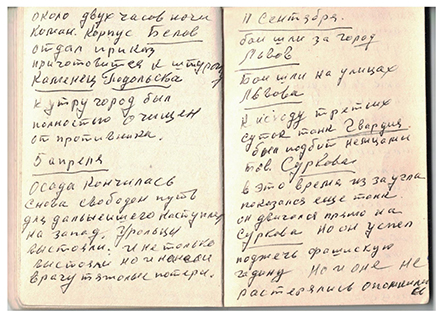 около двух часов ночи
коман. Корпус Белов
отдал приказ
приготовится к штурму
Каменец Подольска
к утру город был
полностью очищен
от противника.
5 апреля
Осада кончилась
снова свободен путь
для дальнейшего наступлен
на запад. Уральцы
выстояли. и не только
выстояли но и нанесли
врагу тяжолые потери.
11 Сентября.
бои шли за город
Львов
Бои шли на улицах
Львова
К исходу третьих
суток танк Гвардия
был подбит немцами
тов. Суркова
в это время из за угла
показался еще танк.
он двигался прямо на
Суркова но он успел
поджечь фашискую
гадину Но и они не
растерялись опомнились